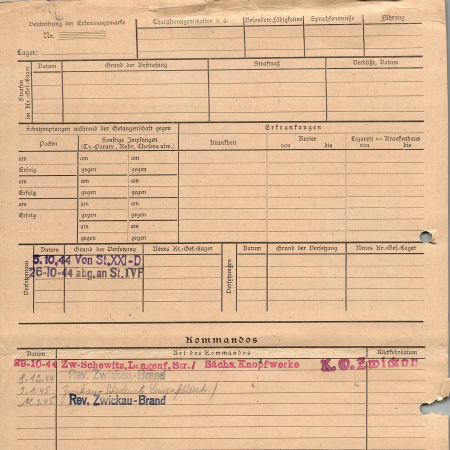 Beschriftung der Erkennungsmarke
Nr.
Lager:
Charaktereigenschaften u. a.
Besondere Fähigkeiten
Sprachkenntnisse
Führung
Strafen im Kr.-Gef.-Lager
Datum
Grund der Bestrafung
Strafmaß
Verbüßt, Datum
Schutzimpfungen während der Gefangenschaft gegen
Erkrankungen
Pocken
Sonstige Impfungen
(Ty.-Paraty., Ruhr, Cholera usw.)
Krankheit
Revier
von bis
Lazarett — Krankenhaus
von bis
am am am
Erfolg gegen gegen
am am am
Erfolg gegen gegen
am am am
Erfolg gegen gegen
am am
gegen gegen
Versetzungen
Datum Grund der Versetzung Neues Kr.-Gef.-Lager
Versetzungen
Datum Grund der Versetzung Neues Kr.-Gef.-Lager
5.10.44 Von St.XXI-D
26-10-44 abg. an St.IVF
Kommandos
Datum Art des Kommandos Rückkehrdatum
29-10-44 Zw-Schewitz, Lengenf, Str./ Sächs. Knopfwerke
8.12.44 Rev. Zwickau-Brand
9.1.45
Rev. Zwickau-Brand